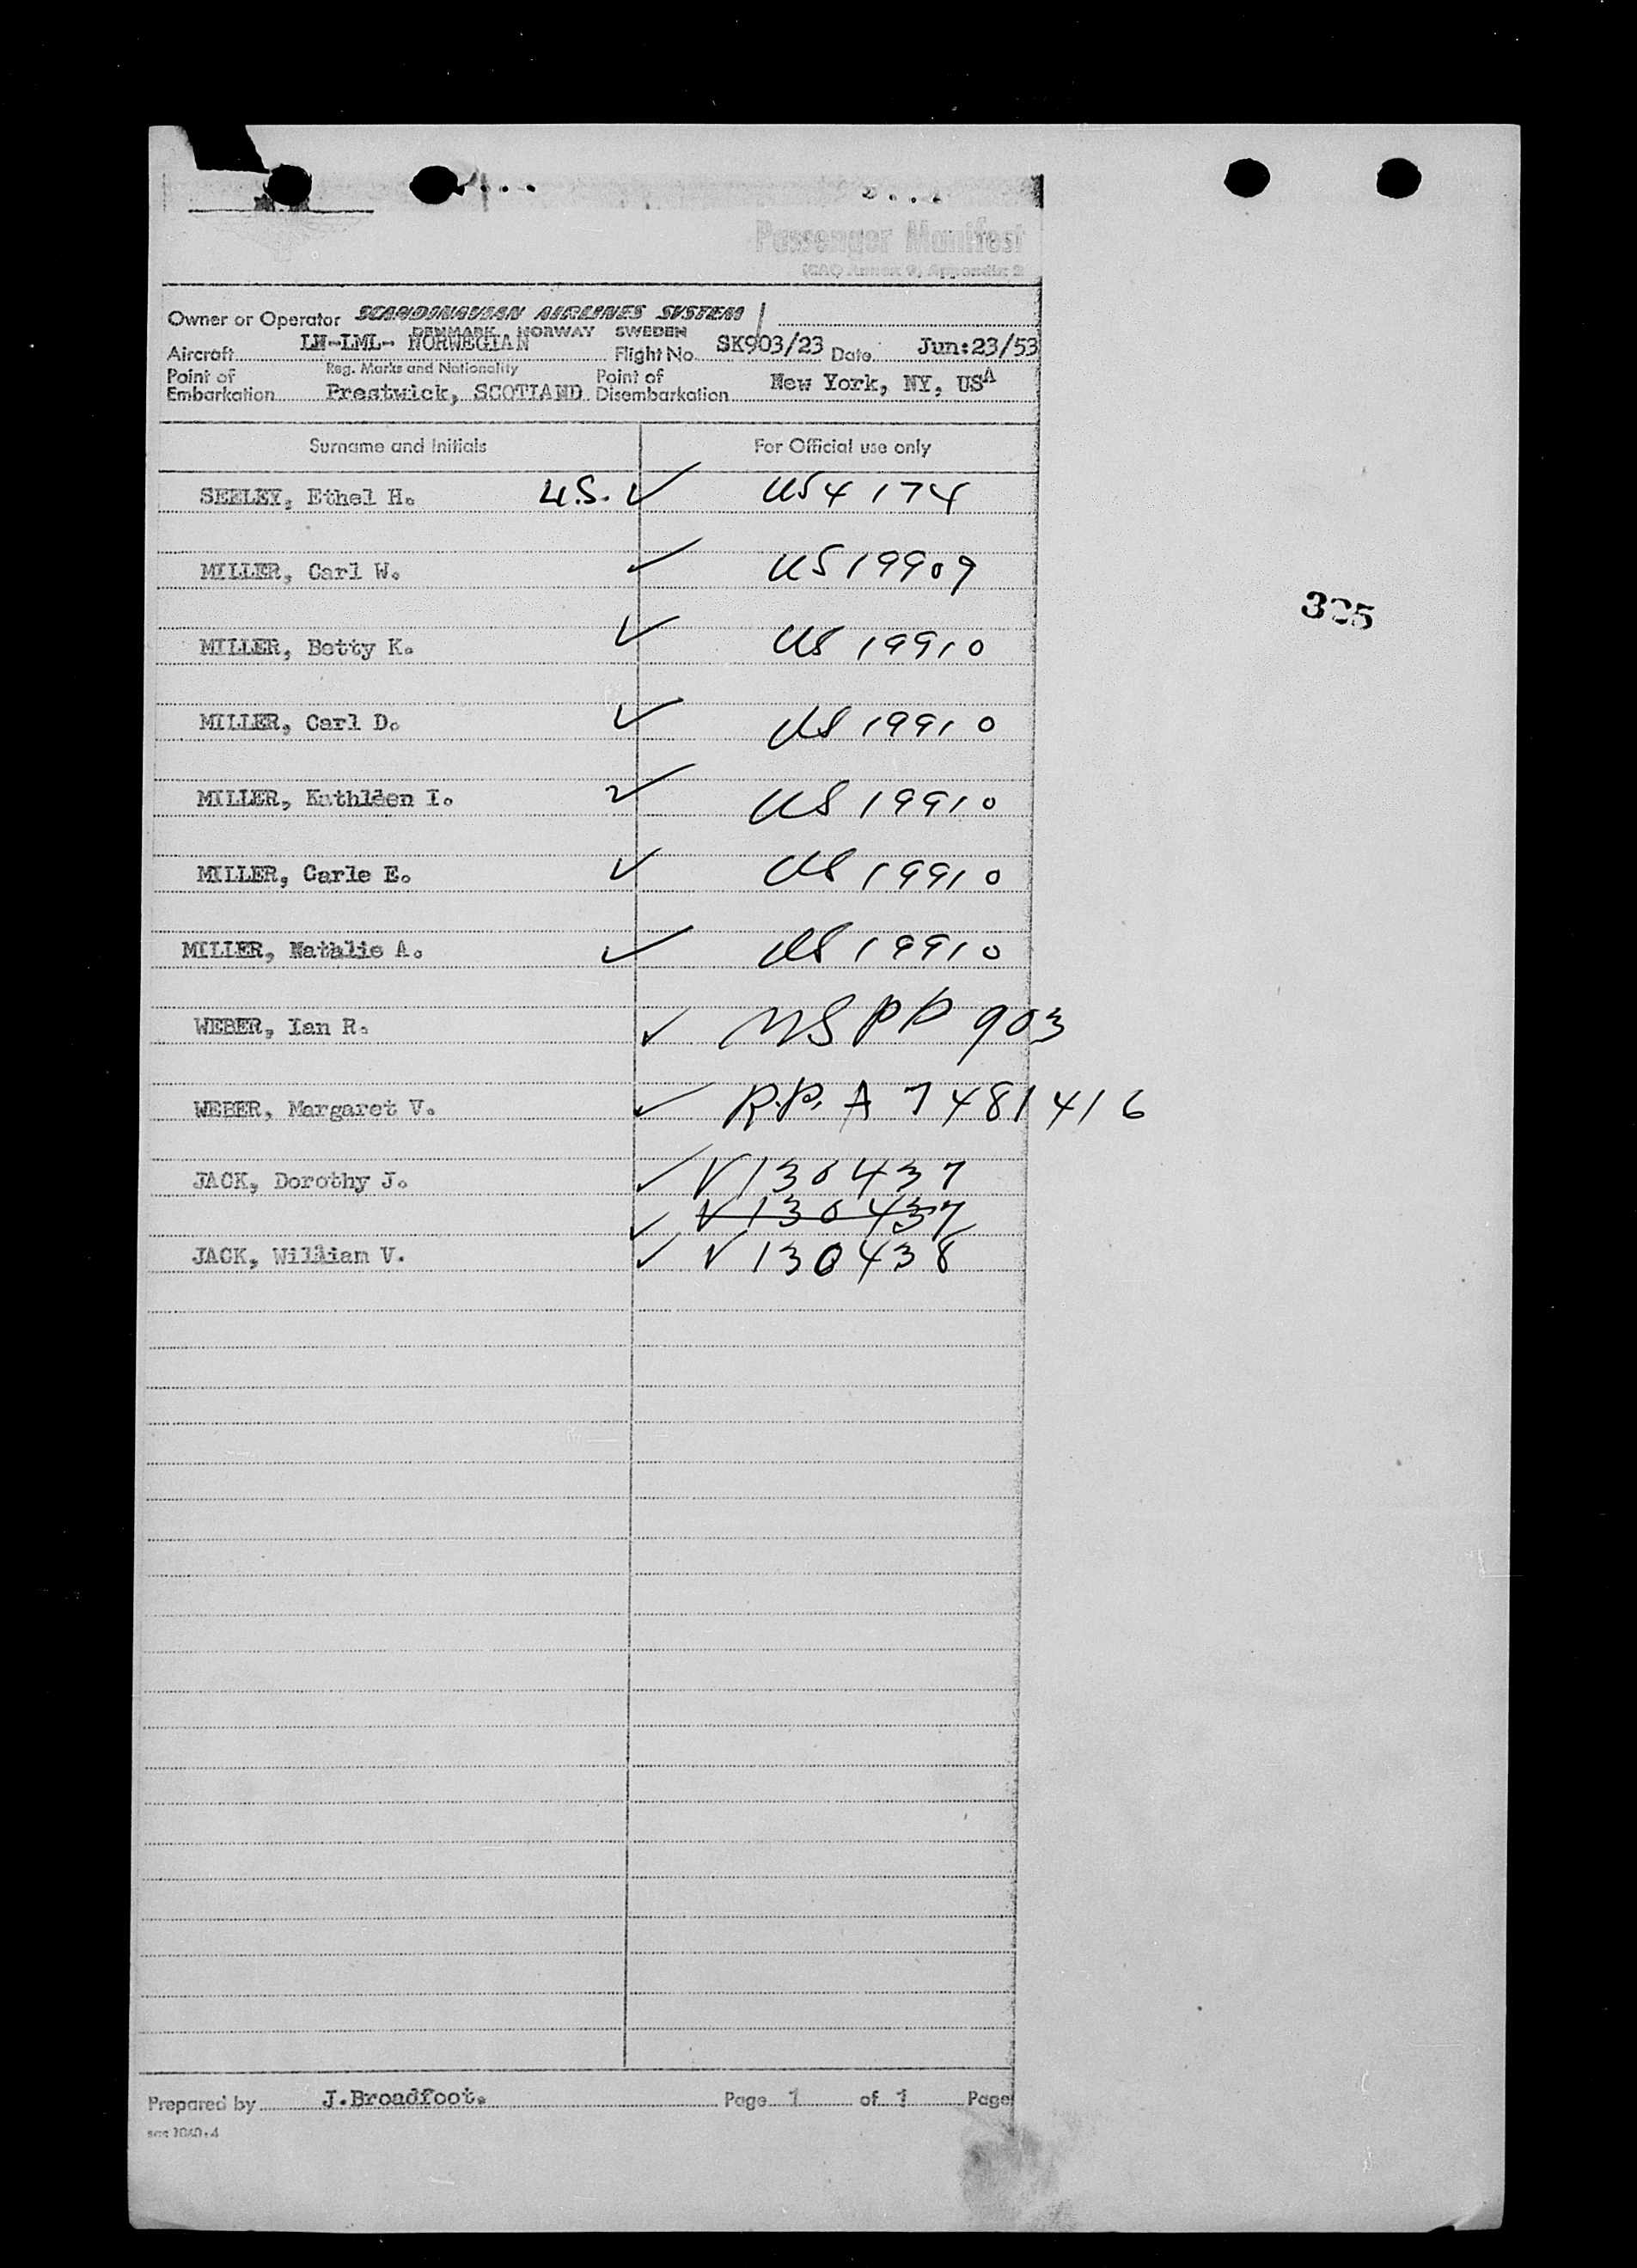 Passenger Manifest
(ICAO Annex 9, Appendix 2
Owner or Operator SCANDINAVIAN AIRLINES SYSTEM
DENMARK NORWAY SWEDEN
Aircraft LN-LML- NORWEGIAN Flight No. SK903/23 Date Jun:23/53
Reg. Marks and Nationality
Point of Embarkation Prestwick, SCOTLAND Point of Disembarkation New York, NY, USA
Surname and Initials For Official use only
SEELEY, Ethel H. U.S. ✓ US 4174
MILLER, Carl W. ✓ US 19909
325
MILLER, Betty K. ✓ US 19910
MILLER, Carl D. ✓ US 19910
MILLER, Kathleen I. ✓ US 19910
MILLER, Carle E. ✓ US 19910
MILLER, Nathlie A. ✓ US 19910
WEBER, Ian R. ✓ US PP 903
WEBER, Margaret V. ✓ R.P. A 7481416
JACK, Dorothy J. ✓ V 130437
✓ V 130437
JACK, William V. ✓ V 130438
Prepared by J.Broadfoot. Page 1 of 1 Page